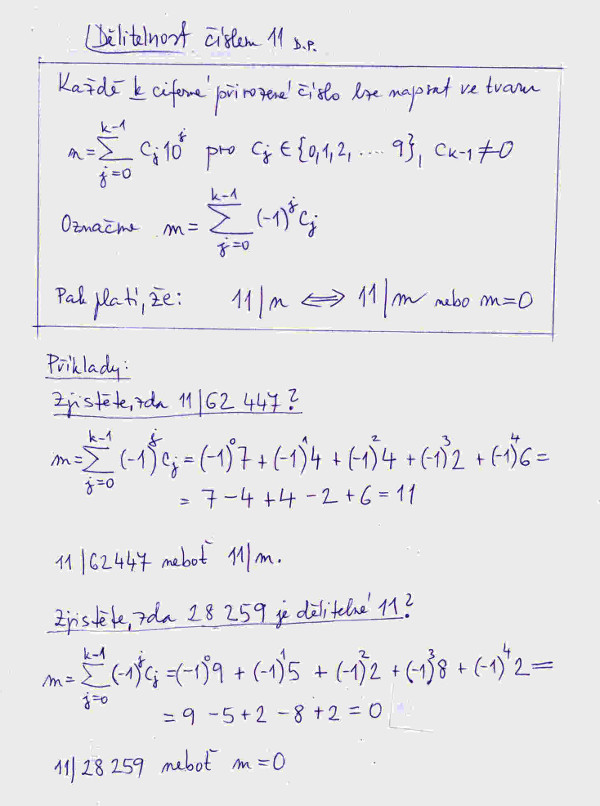 Dělitelnost číslem 11 D.P.
Každé k ciferné přirozené číslo lze napsat ve tvaru
n = \sum_{j=0}^{k-1} c_j 10^j pro c_j ∈ {0,1,2, .... 9}, c_{k-1} ≠ 0
Označme m = \sum_{j=0}^{k-1} (-1)^j c_j
Pak platí, že: 11|n ⟺ 11|m nebo m=0
Příklady:
Zjistěte, zda 11|62 447?
m = \sum_{j=0}^{k-1} (-1)^j c_j = (-1)^0 7 + (-1)^1 4 + (-1)^2 4 + (-1)^3 2 + (-1)^4 6 =
= 7 - 4 + 4 - 2 + 6 = 11
11|62447 neboť 11|m.
Zjistěte, zda 28 259 je dělitelné 11?
m = \sum_{j=0}^{k-1} (-1)^j c_j = (-1)^0 9 + (-1)^1 5 + (-1)^2 2 + (-1)^3 8 + (-1)^4 2 =
= 9 - 5 + 2 - 8 + 2 = 0
11|28 259 neboť m=0